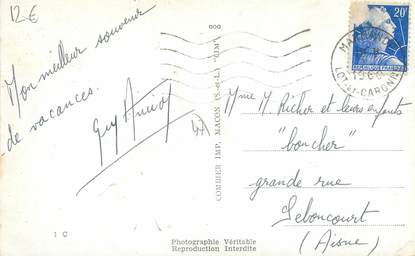 12 €
Mon meilleur souvenir
de vacances.
Guy
47
1 C
Photographie Véritable
Reproduction Interdite
COMBIER IMP. MACON (S.-&-L.) "CIM"
20F
REPUBLIQUE FRANÇAISE
LOT-ET-GARONNE
Mme M. Richer et leurs enfants
"boucher"
grande rue
Seboncourt
(Aisne)